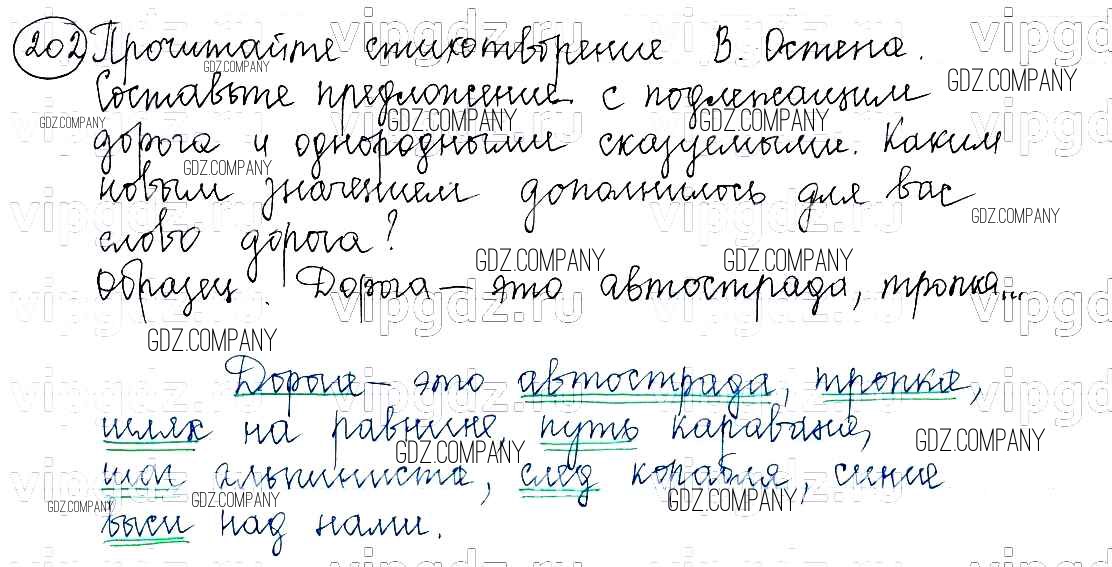 202 Прочитайте стихотворение В. Остена.
Составьте предложение с подлежащим
дорога и однородными сказуемыми. Каким
новым значением дополнилось для вас
слово дорога?
Образец. Дорога — это автострада, тропка...
Дорога — это автострада, тропка,
шлях на равнине, путь каравана,
шаг альпиниста, след корабля, синие
выси над нами.
GDZ.COMPANY
vipgdz.ru